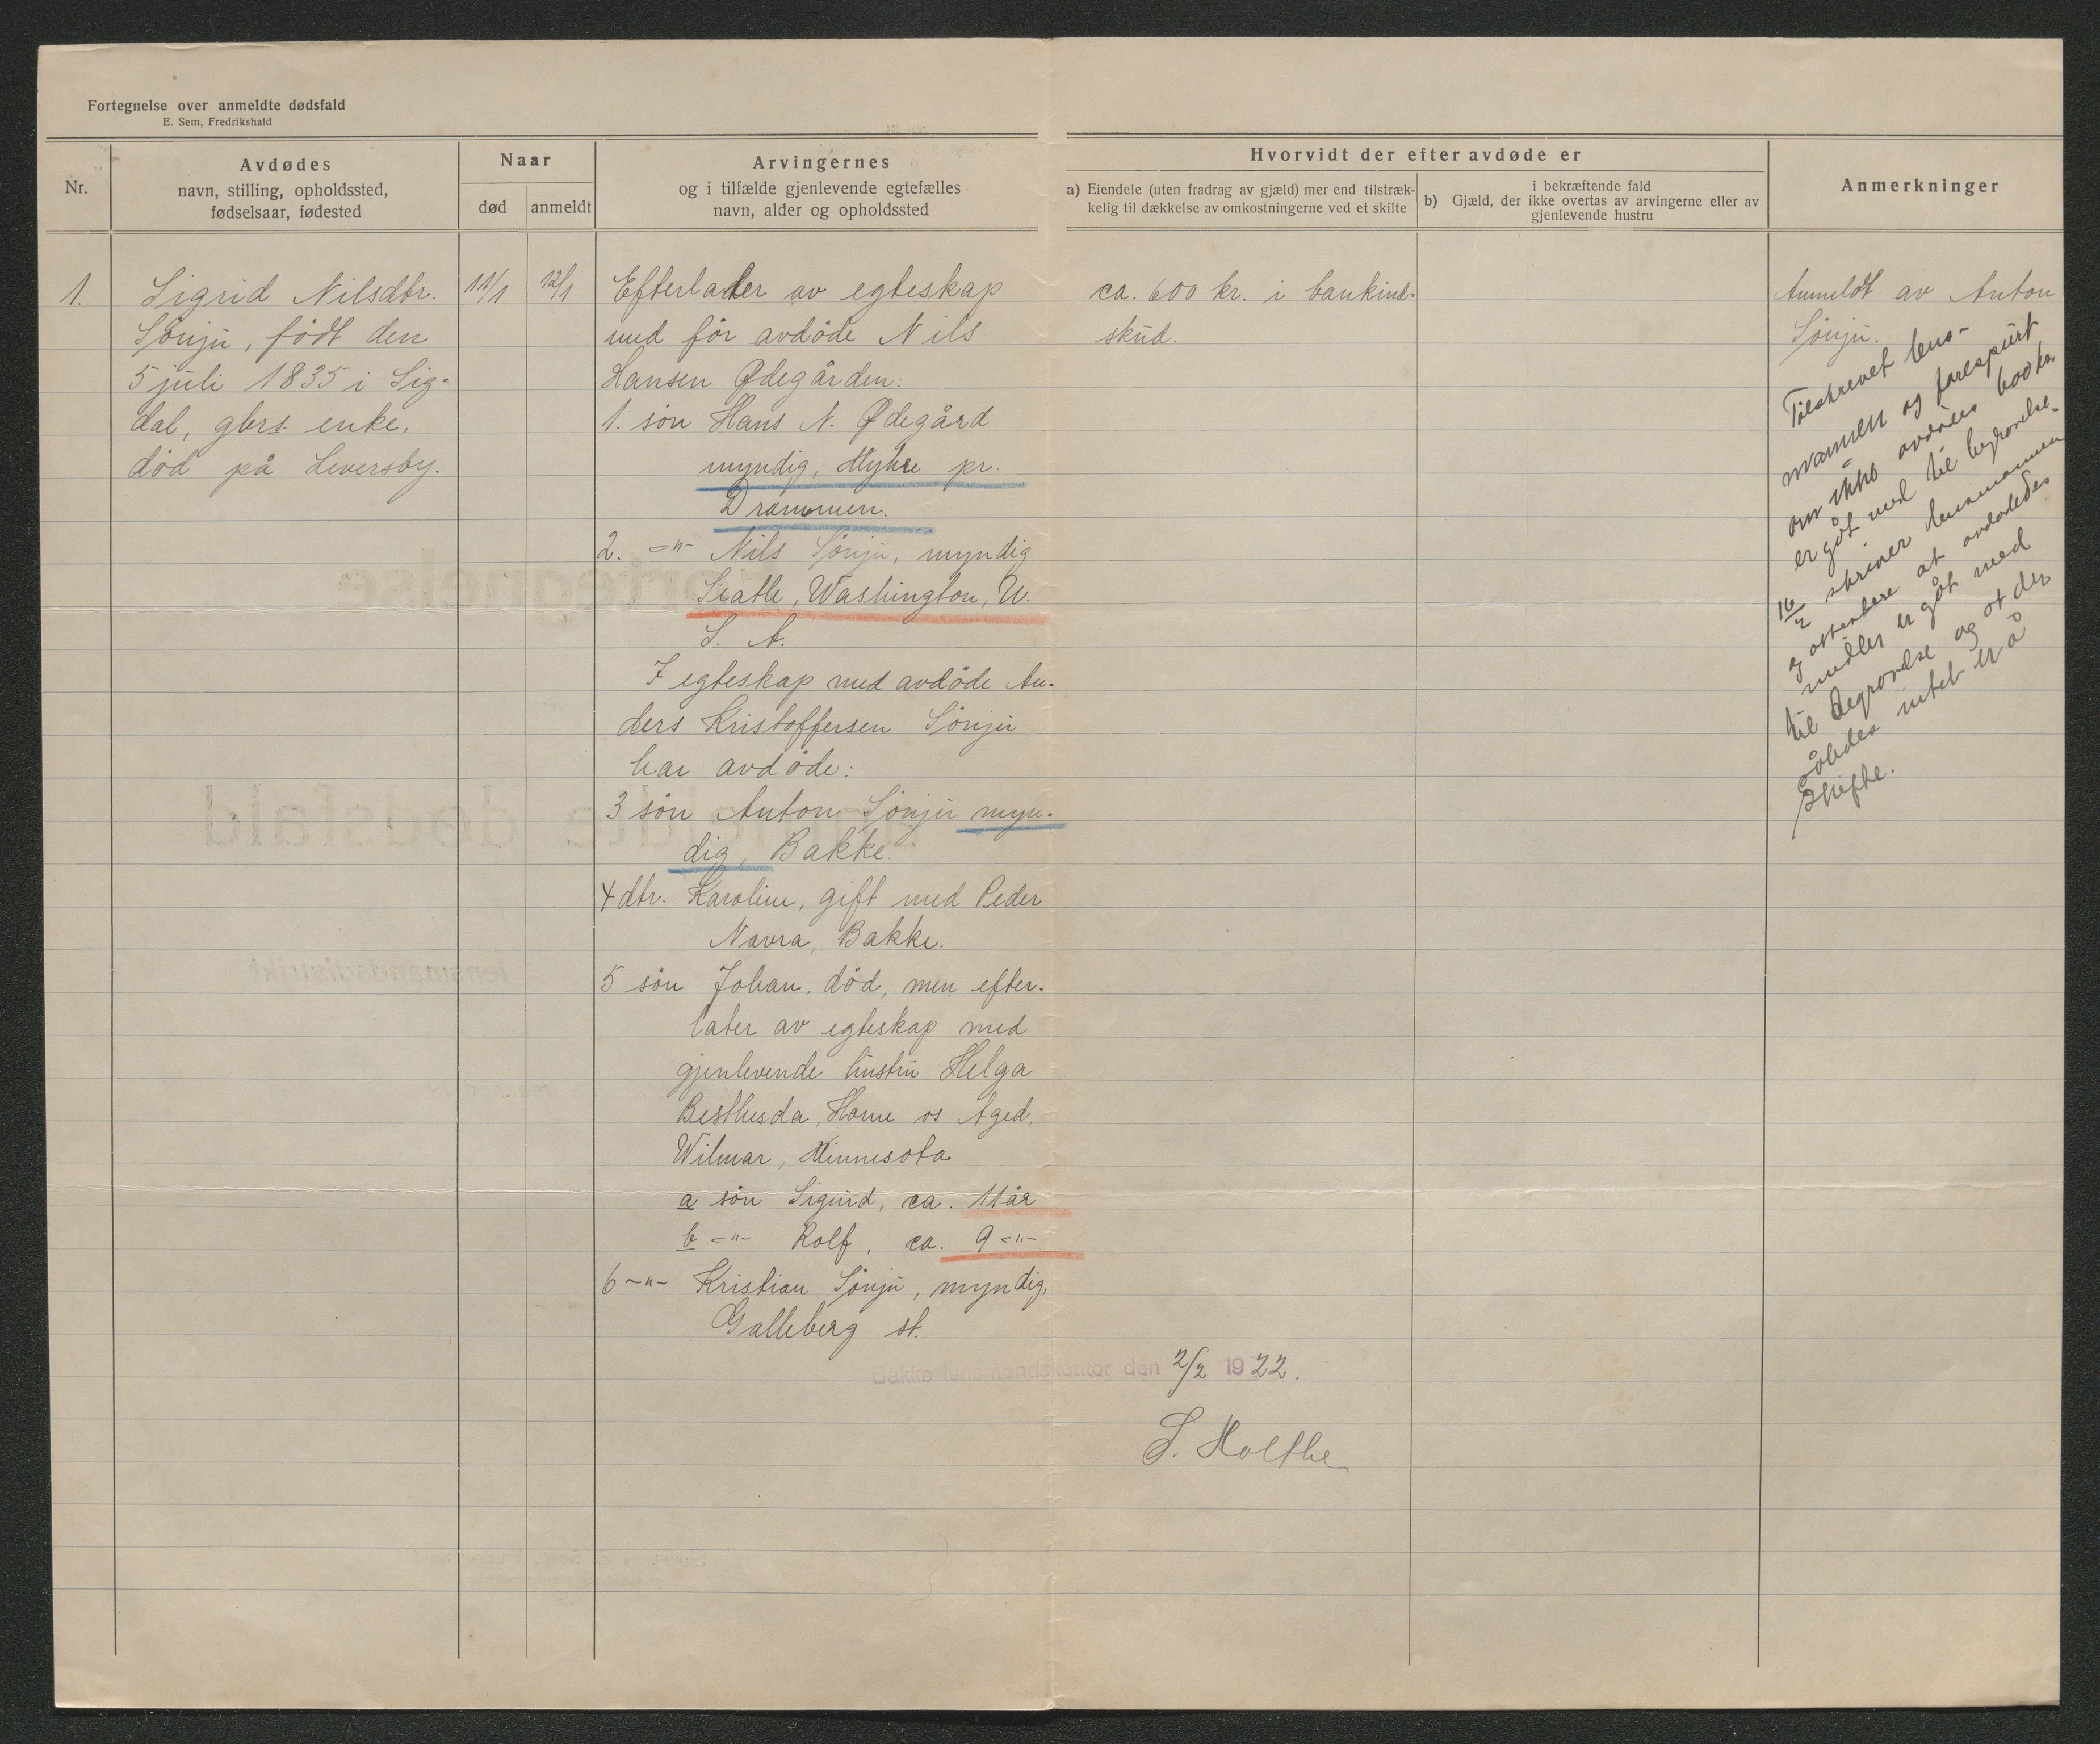 Fortegnelse over anmeldte dødsfald
E. Sem, Fredrikshald
Nr.
Avdødes
navn, stilling, opholdssted,
fødselsaar, fødested
Naar
død
anmeldt
Arvingernes
og i tilfælde gjenlevende egtefælles
navn, alder og opholdssted
Hvorvidt der efter avdøde er
a) Eiendele (uten fradrag av gjæld) mer end tilstræk-
kelig til dækkelse av omkostningerne ved et skifte
b) Gjæld, der i bekræftende fald
ikke overtas av arvingerne eller av
gjenlevende hustru
Anmerkninger
1.
Sigrid Nilsdtr.
Sönju, födt den
5 juli 1835 i Sig-
dal, gbrs. enke.
död på Leversby.
11/1
12/1
Efterlader av egteskap
med för avdöde Nils
Hansen Ødegården:
1. sön Hans N. Ødegård
myndig, Myhre pr.
Drammen.
2. -"- Nils Sönju, myndig
Seatle, Washington, U.
S. A.
I egteskap med avdöde An-
ders Kristoffersen Sönju
har avdöde:
3 sön Anton Sönju myn-
dig, Bakke.
4 dtr. Karoline, gift med Peder
Navra, Bakke.
5 sön Johan, död, men efter-
later av egteskap med
gjenlevende hustru Helga
Besthesda, Home os Aged,
Wilmar, Minnesota
a sön Sigurd, ca. 11 år
b -"- Rolf, ca. 9 -"-
6 -"- Kristian Sönju, myndig,
Galleberg st.
ca. 600 kr. i bankind-
skud.
Anmeldt av Anton
Sönju.
Tilskrevet lens-
mannen og forespurt
om ikke avdödes 600 kr.
er gåt med til begravelse.
16/2 skriver lensmannen
og attesterer at avdödes
midler er gåt med
til begravelse og at der
således intet er å
skifte.
Bakke lensmandskontor den 2/2 1922.
S. Holthe